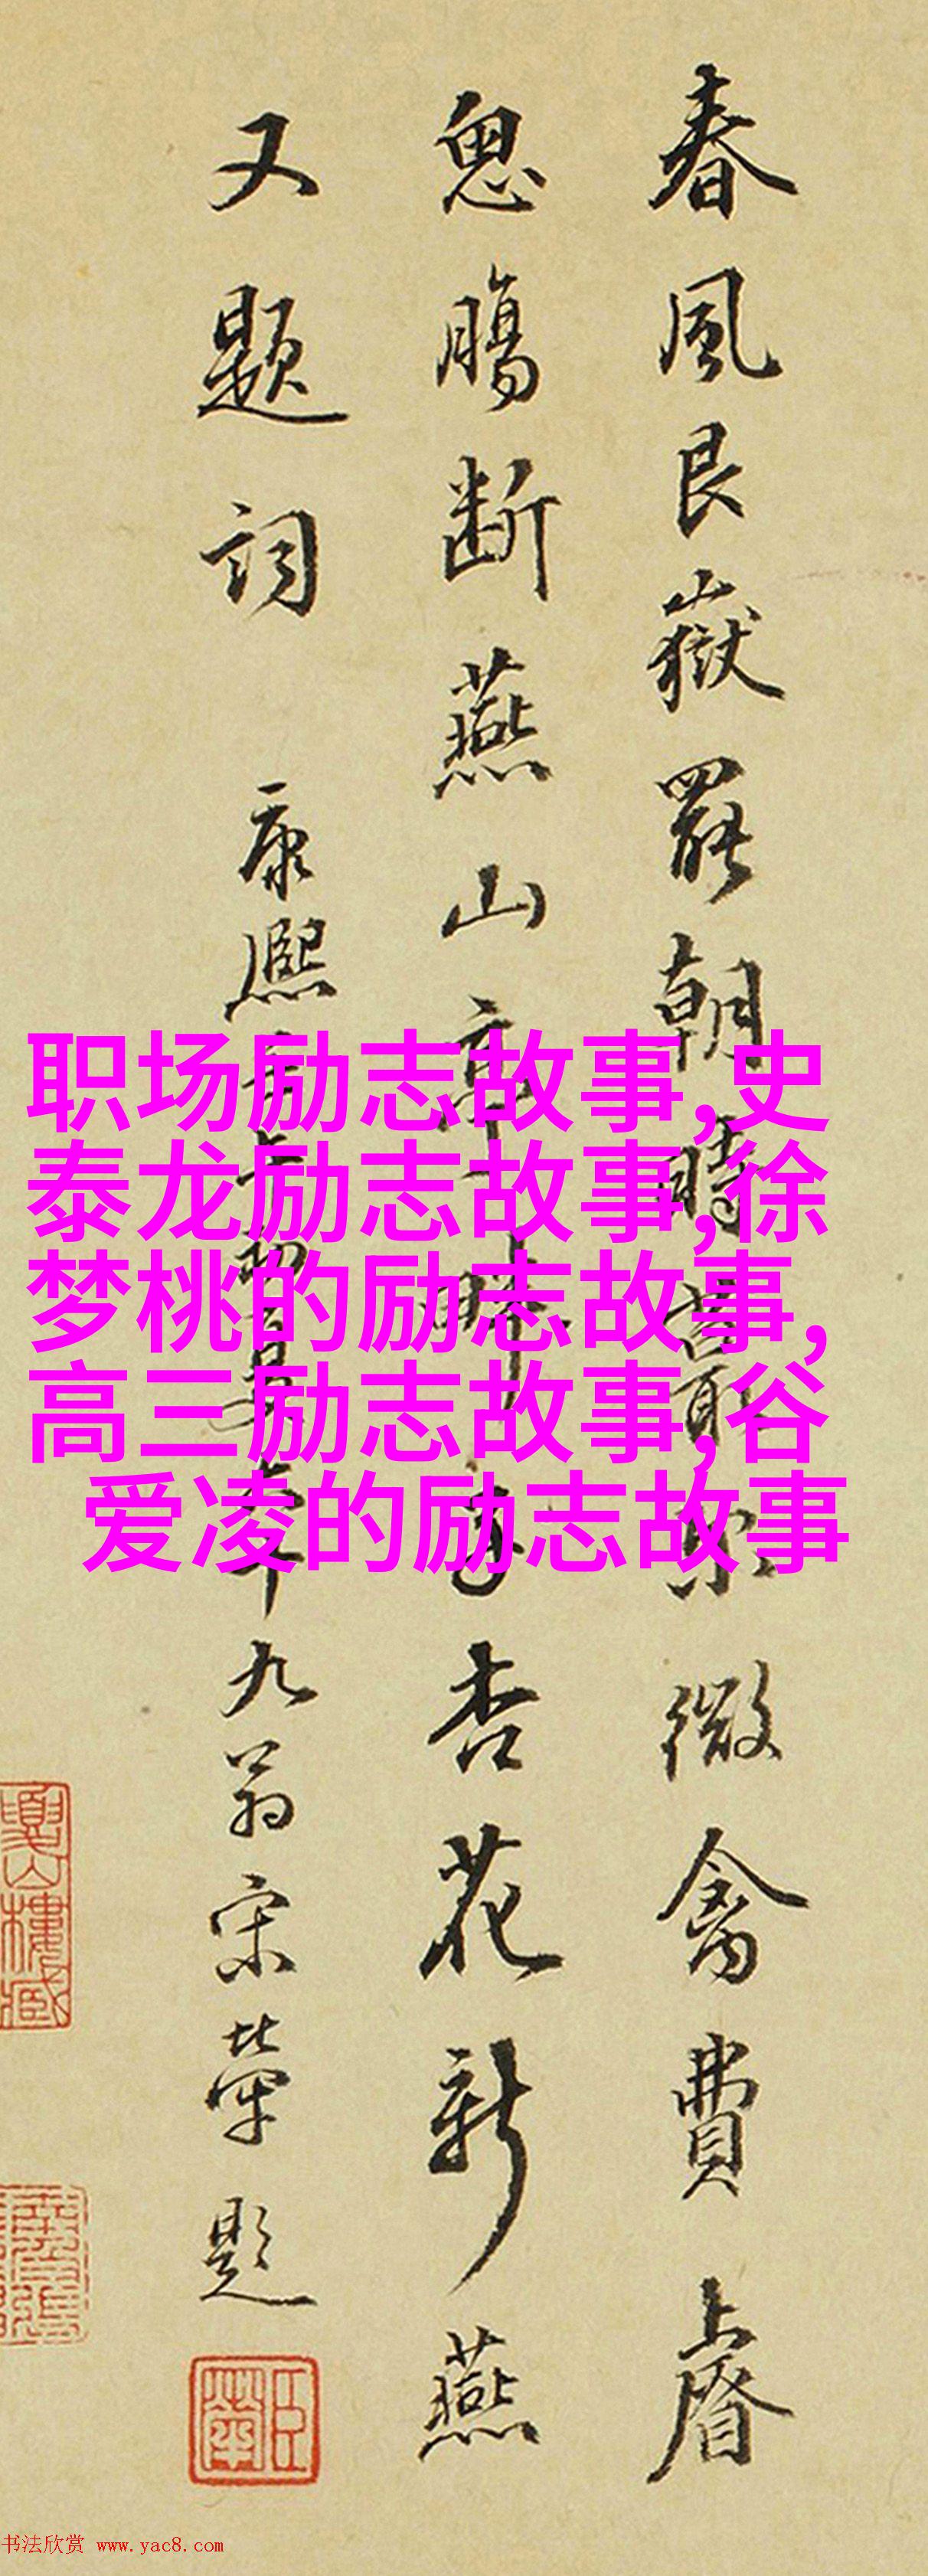 春風艮嶽罷朝時 最 微禽費上睿
思腸斷燕山亭 杏花新燕
又題詞
康熙 九翁宋犖題
職场励志故事,史
泰龙励志故事,徐
梦桃的励志故事,
高三励志故事,谷
爱凌的励志故事
臣犖
书法欣赏 www.yac8.com